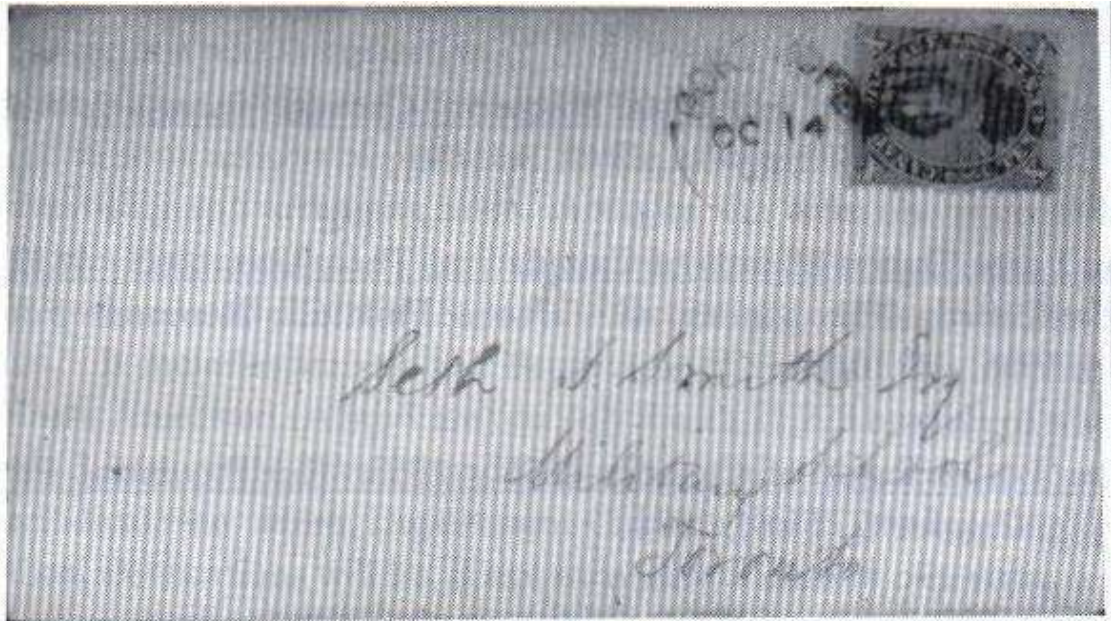 OC 14
Seth S. Smith Esq
Military School
Toronto